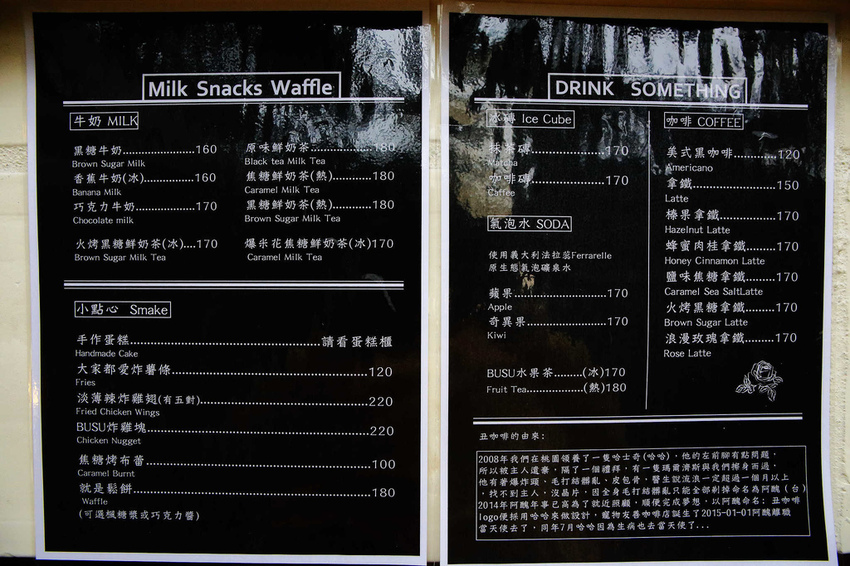 Milk Snacks Waffle
牛奶 MILK
黑糖牛奶........................160
Brown Sugar Milk
香蕉牛奶(冰)................160
Banana Milk
巧克力牛奶....................170
Chocolate milk
火烤黑糖鮮奶茶(冰)....170
Brown Sugar Milk Tea
原味鮮奶茶....................180
Black tea Milk Tea
焦糖鮮奶茶(熱)............180
Caramel Milk Tea
黑糖鮮奶茶(熱)............180
Brown Sugar Milk Tea
爆米花焦糖鮮奶茶(冰)170
Caramel Milk Tea
小點心 Smake
手作蛋糕................................................請看蛋糕櫃
Handmade Cake
大家都愛炸薯條................................................120
Fries
淡薄辣炸雞翅(有五對)........................................220
Fried Chicken Wings
BUSU炸雞塊................................................220
Chicken Nugget
焦糖烤布蕾................................................100
Caramel Burnt
就是鬆餅................................................180
Waffle
(可選楓糖漿或巧克力醬)
DRINK SOMETHING
冰磚 Ice Cube
抹茶磚............................170
Matcha
咖啡磚............................170
Caffee
氣泡水 SODA
使用義大利法拉蕊Ferrarelle
原生態氣泡礦泉水
蘋果............................170
Apple
奇異果............................170
Kiwi
BUSU水果茶.........(冰)170
Fruit Tea..................(熱)180
咖啡 COFFEE
美式黑咖啡............120
Americano
拿鐵........................150
Latte
榛果拿鐵................170
Hazelnut Latte
蜂蜜肉桂拿鐵........170
Honey Cinnamon Latte
鹽味焦糖拿鐵........170
Caramel Sea SaltLatte
火烤黑糖拿鐵........170
Brown Sugar Latte
浪漫玫瑰拿鐵........170
Rose Latte
丑咖啡的由來:
2008年我們在桃園領養了一隻哈士奇(哈哈)，他的左前腳有點問題，
所以被主人遺棄，隔了一個禮拜，有一隻瑪爾濟斯與我們擦身而過，
他有著爆炸頭、毛打結髒亂、皮包骨，醫生說流浪一定超過一個月以上
，找不到主人，沒晶片，因全身毛打結髒亂只能全部剃掉命名為阿醜(台)
2014年阿醜年事已高為了就近照顧，順便完成夢想，以阿醜命名：丑咖啡
logo便採用哈哈來做設計，寵物友善咖啡店誕生了2015-01-01阿醜離職
當天使去了，同年7月哈哈因為生病也去當天使了...